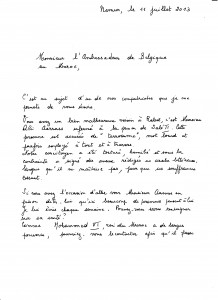 Namur, le 11 juillet 2013
Monsieur l'Ambassadeur de Belgique
au Maroc,
C'est au sujet d'un de mes compatriotes que je me
permets de vous écrire.
Vous avez un bien malheureux voisin à Rabat, c'est Monsieur
Ali Aarrass enfermé à la prison de Salé II. Cette
personne est accusée de "terrorisme", mot lourd et
parfois employé à tort et à travers.
Notre concitoyen a été torturé, humilié et sous la
contrainte a signé des aveux rédigés en arabe littéraire,
langue qu'il ne maîtrise pas, pour que sa souffrance
cesse
Si vous avez l'occasion d'aller voir Monsieur Aarrass en
prison dites lui qu'ici beaucoup de personnes pensent à lui.
Je lui écris chaque semaine. Pouvez-vous vous renseigner
sur sa santé?
Comme Mohammed VI, roi du Maroc a de larges
pouvoirs, pourriez vous le contacter afin qu'il fasse